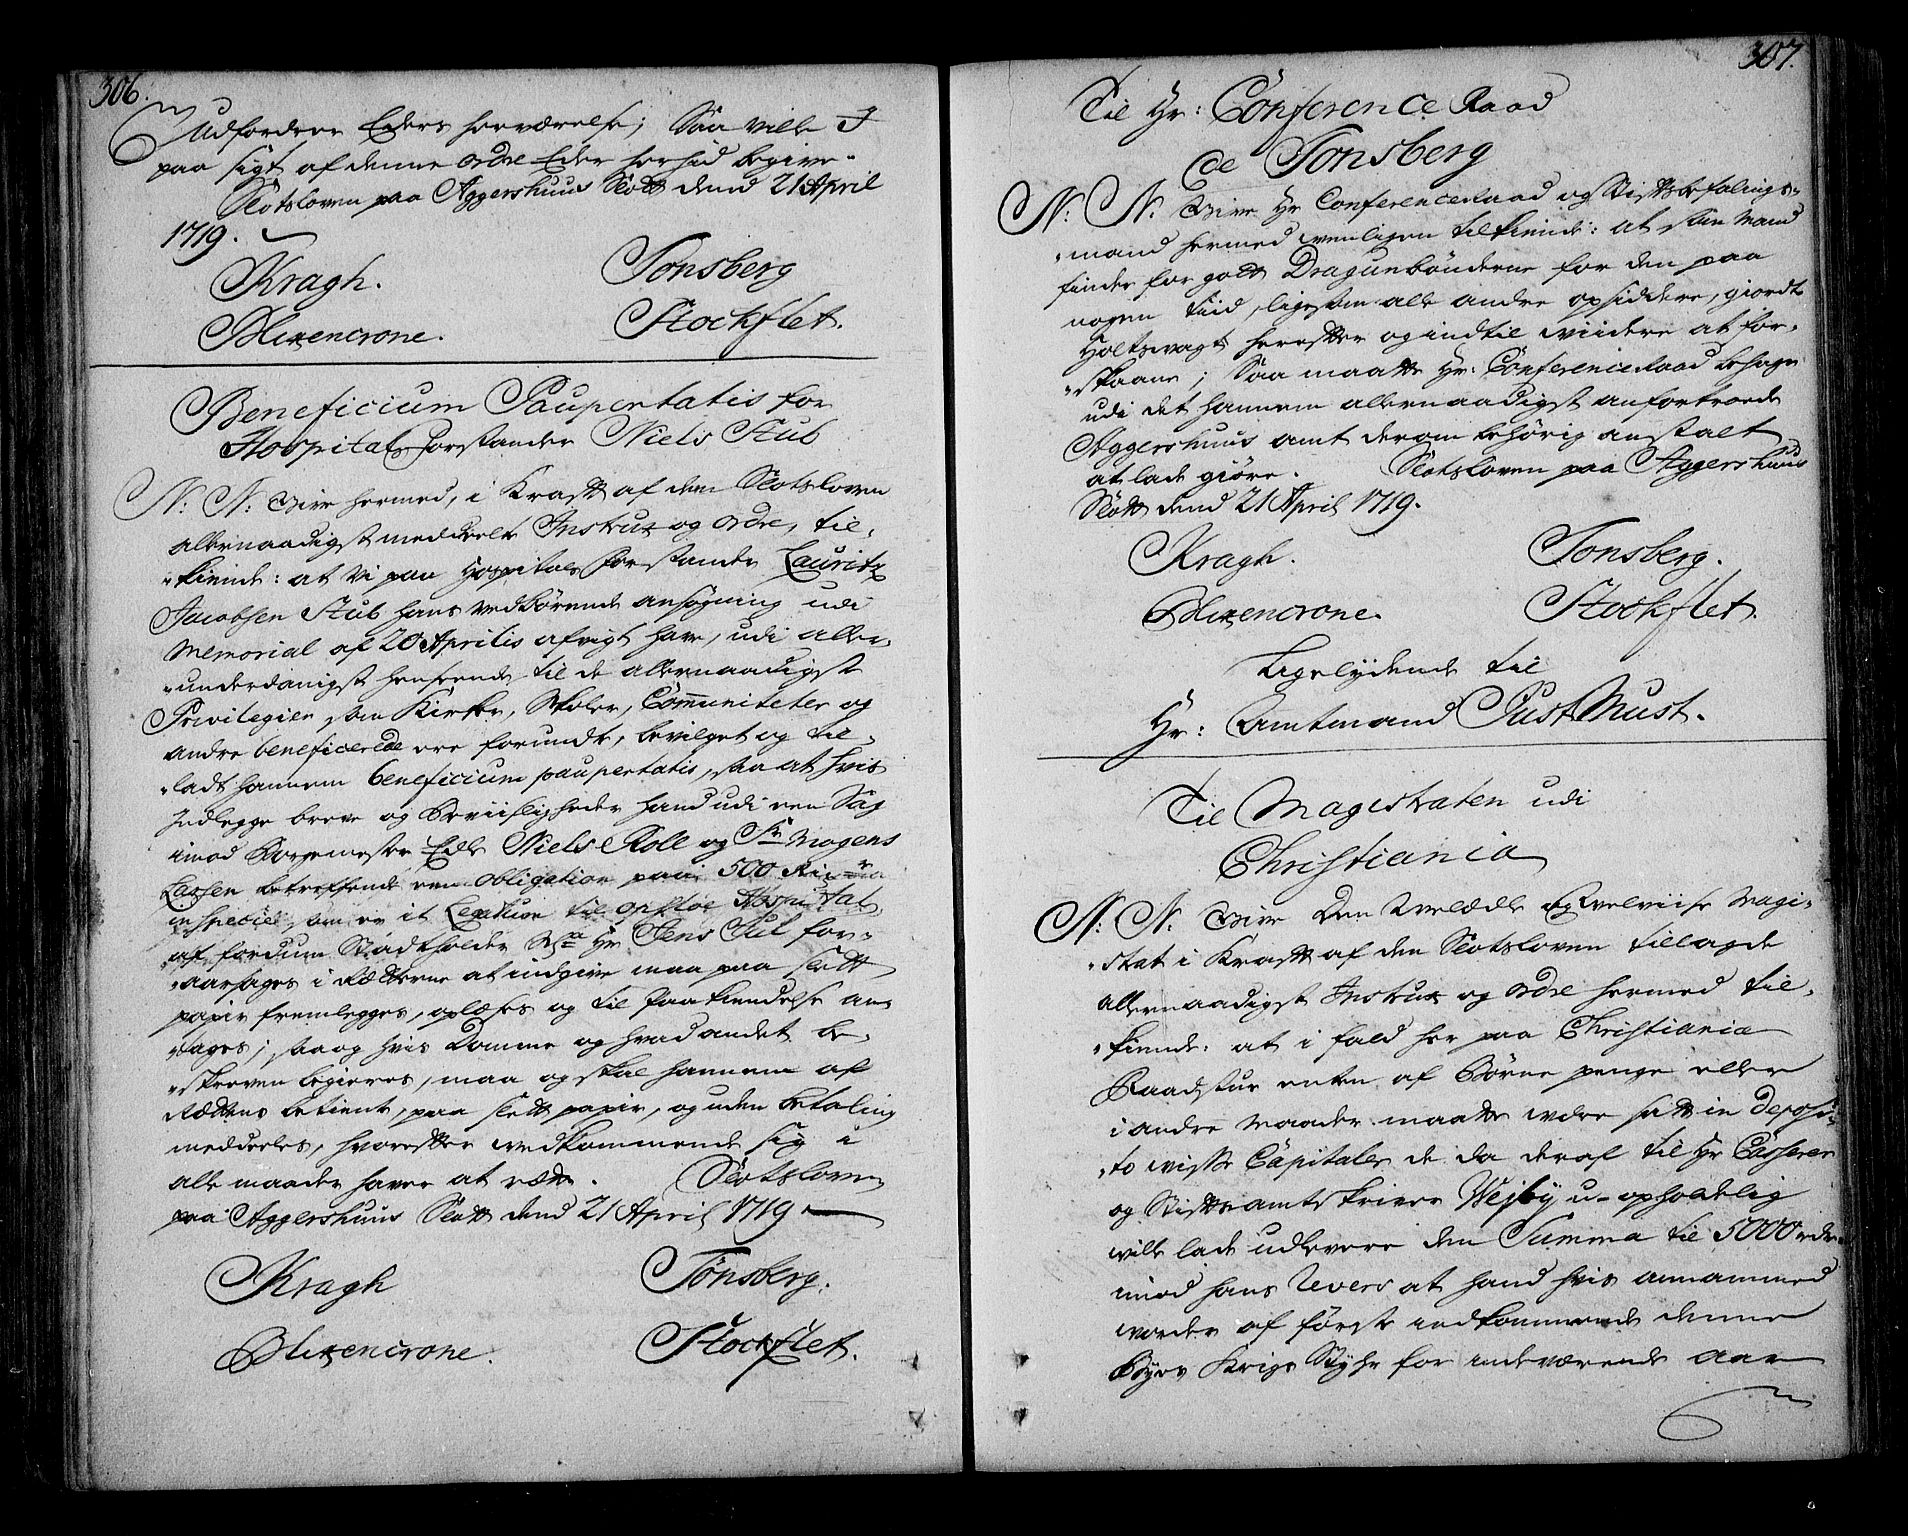 306.
Udfordrer Eders herværelse; Saa ville I
paa sigt af denne ordre Eder herhid begive.
Slotsloven paa Aggershuus Slott dend 21 April
1719.
Kragh. Tonsberg
Blixencrone. Stockflet.
Beneficium Paupertatis for
Hospitals forstander Niels Stub
N: N: Giør hermed, i Krafft af den Slotsloven
allernaadigst meddeelte Instrux og ordre, til-
kiende: at Vi paa Hospitals forstander Lauritz
Jacobsen Stub hans vedkørende ansøgning udi
Memorial af 20 Aprilis afvigt have, udi aller-
underdanigst henseende til de allernaadigste
Privilegier som Kirker, Skoler, Communiteter og
andre beneficerede ere forundt, bevilget og til-
ladt hannem beneficium paupertatis, saa at hvis
Indlegge breve og Beviisligheder hand udi een Sag
imod Borgemester Edle Niels Roll og Sr Mogens
Lassen betreffende een obligation paa 500
in specie, som er it Legatum til opsloe Hospital
af fordum Stadtholder Hr Jens Juel for-
aarsages i Rætterne at indgive maa paa slett
papir fremlegges, oplæses og til paakiendelse an-
tages; saa og hvis Domme og hvad andet be-
skreven begieres, maa og skal hannem af
Rættens betient, paa slett papir, og uden betaling
meddeeles, hvorefter vedkommende sig i
alle maader haver at rætte. Slotsloven
paa Aggershuus Slott dend 21 April 1719
Kragh Tønsberg.
Blixencrone. Stockflet.
307.
Til Hr: Conference Raad
de Tonsberg
N: N. Giør Hr Conferenceraad og Stiftsbefalings-
mand hermed venligen tilkiende: at som Mand
finder for godt Dragunbønderne for den paa
nogen tiid, ligesom alle andre opsiddere, giordte
Holtsvagt herefter og indtil viidere at for-
skaane; Saa maatte Hr: Conferenceraad behage
udi det hannem allernaadigst anfortroede
Aggershuus amt derom behørig anstalt
at lade giøre. Slotsloven paa Aggershuus
Slott dend 21 April 1719.
Kragh. Tonsberg.
Blixencrone. Stockflet.
Ligelydende til
Hr: Amtmand Just Must.
Til Magistraten udi
Christiania
N: N. Giør Den Velædle og Velviise Magi-
strat i Krafft af den Slotsloven tillagde
allernaadigst Instrux og ordre hermed til-
kiende: at i fald her paa Christiania
Raadstue enten af Børne penge eller
i andre maader maatte være satt in deposi-
to visse Capitaler de da deraf til Hr Casserer
og Stiftsamtskriver Wejby u-opholdelig
ville lade udlevere den Summa til 5000 rdr
imod hans Revers at hand hvis annammed
vorder af første indkommende denne
Byes Krigs Styhr for indeværende aar